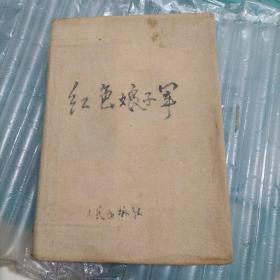 红色娘子军
人民出版社